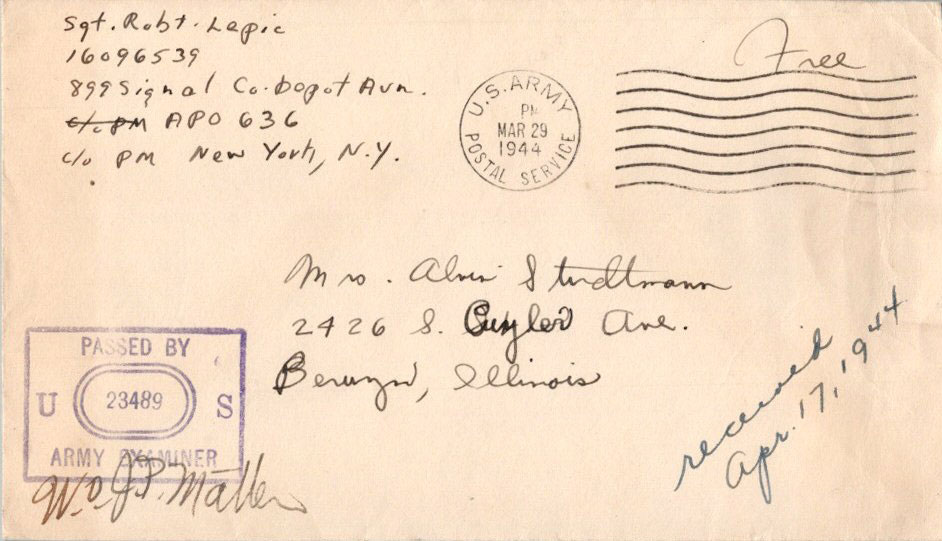 Sgt. Robt. Lepic
16096539
899 Signal Co. Depot Avn.
c/o PM APO 636
c/o PM New York, N.Y.
Free
U.S. ARMY
PM
MAR 29
1944
POSTAL SERVICE
Mrs. Alvin Studtmann
2426 S. Cuyler Ave.
Berwyn, Illinois
received
Apr. 17, 1944
PASSED BY
U 23489 S
ARMY EXAMINER
W.O. J.P.